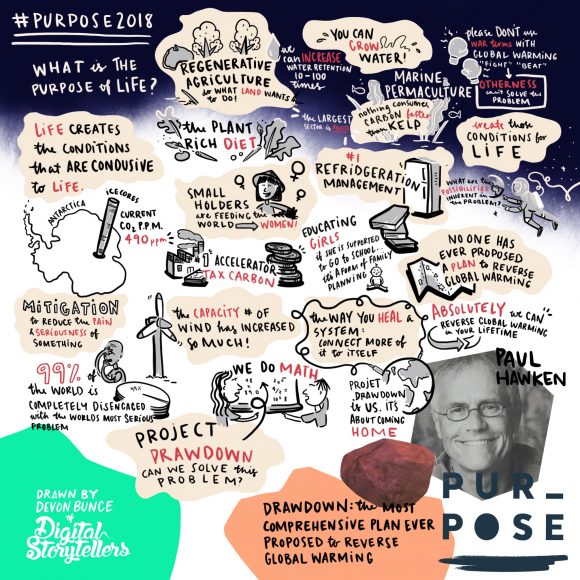 #PURPOSE2018
WHAT is THE
PURPOSE of LiFE?
REGENERATIVE
AGRICULTURE
is WHAT LAND WANTS
to DO!
we
can INCREASE
WATER RETENTION
10-100
times
YOU CAN
GROW
WATER!
please DON'T use
WAR terms WITH
GLOBAL WARMING
"FIGHT" "BEAT"
OTHERNESS
can't SOLVE the
PROBLEM
MARINE
PERMACULTURE
nothing consumes
CARBON faster
than KELP
create those
CONDITIONS for
LIFE
LiFE CREATES
the CONDITIONS
that ARE CONDUSIVE
to LiFE.
the PLANT
RICH DIET
the LARGEST
SECTOR is FOOD
#1
REFRIDGERATION
MANAGEMENT
WHAT ARE the
POSSIBILITIES
INHERENT in
the PROBLEM?
SMALL
HOLDERS
are FEEDING the
WORLD
WOMEN!
ANTARCTICA
ICE CORES
CURRENT
CO2 P.P.M.
490 ppm
#1 ACCELERATOR
TAX CARBON
EDUCATING
GIRLS
if SHE is SUPPORTED
to GO to SCHOOL...
its A FORM of FAMILY
PLANNING
NO ONE HAS
EVER PROPOSED
A PLAN to REVERSE
GLOBAL WARMING
MiTiGATiON
to REDUCE the PAIN
& SERIOUSNESS of
SOMETHING
the CAPACITY # OF
WIND has INCREASED
SO MUCH!
the WAY YOU HEAL a
SYSTEM:
CONNECT MORE of
it to ITSELF
ABSOLUTELY we CAN
REVERSE GLOBAL WARMING
in YOUR LIFETIME
99% of
the WORLD is
COMPLETELY DISENGAGED
with the WORLDS MOST SERIOUS
PROBLEM
99%
WE DO MATH
PROJET
DRAWDOWN
is US. IT'S
ABOUT COMING
HOME
PAUL
HAWKEN
PROJECT
DRAWDOWN
CAN WE SOLVE this
PROBLEM?
DRAWN BY
DEVON BUNCE
of
Digital
Storytellers
DRAWDOWN: the MOST
COMPREHENSIVE PLAN EVER
PROPOSED to REVERSE
GLOBAL WARMING
PUR_
POSE